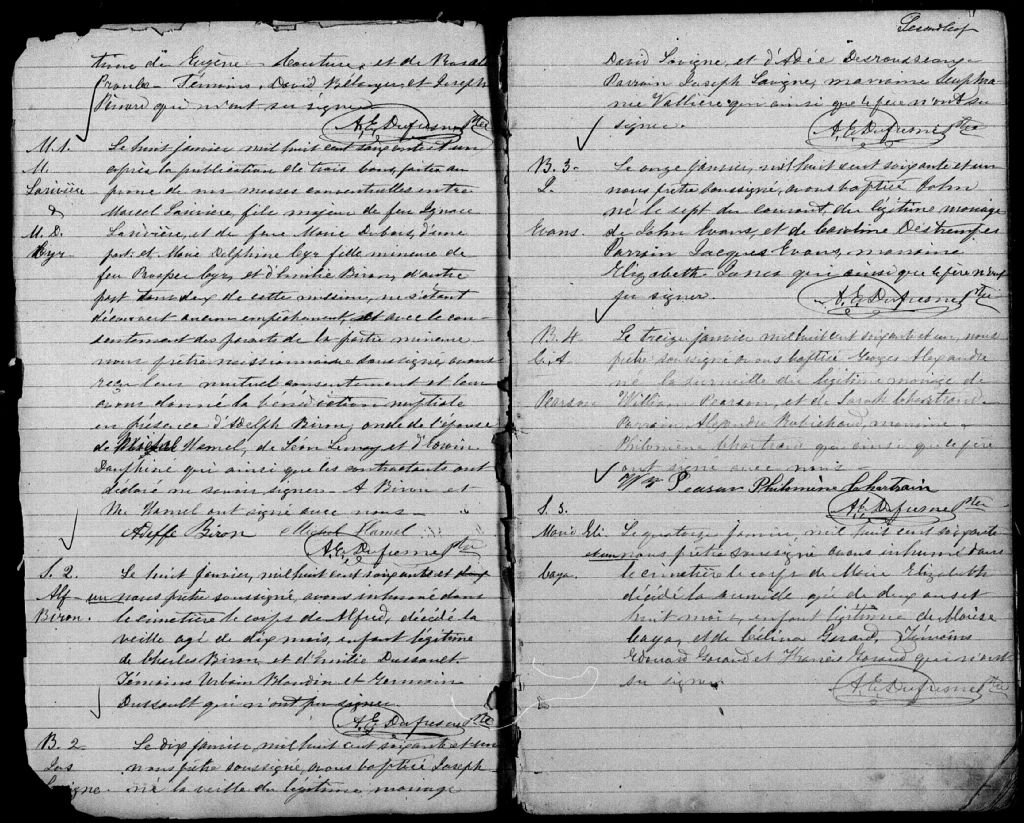 time de Eugène Couture, et de Rosalie
Proulx. Témoins, David Bélanger, et Joseph
qui n'ont su signer
A. E. Dufresne Ptre
M. 1.
M.
Larivière
&
M. D.
Cyr
Le huit janvier mil huit cent soixante et un
après la publication de trois bans, faites au
prone de nos messes conventuelles entre
Marcel Larivière, fils majeur de feu Ignace
Larivière, et de feue Marie Dubois, d'une
part, et Marie Delphine Cyr fille mineure de
feu Prosper Cyr, et d'Emilie Biron, d'autre
part tous deux de cette mission, ne s'étant
découvert aucun empêchement, et avec le con-
sentement des parents de la partie mineure
nous prêtre missionnaire soussigné, avons
reçu leur mutuel consentement et leur
avons donné la bénédiction nuptiale
en présence d'Adolph Biron, oncle de l'épouse
de Michel Hamel, de Léon Lemay et d'
Dauphiné qui ainsi que les contractants ont
déclaré ne savoir signer. A Biron et
M. Hamel ont signé avec nous.
Adlffe Biron Michel Hamel
A. E. Dufresne Ptre
S. 2.
Alf-
Biron.
Le huit janvier, mil huit cent soixante et
un nous prêtre soussigné, avons inhumé dans
le cimetière le corps de Alfred, décédé la
veille agé de dix mois, enfant légitime
de Charles Biron, et d'Emilie Dussault.
Témoins Urbain Blondin et Germain
Dussault qui n'ont pu signer.
A. E. Dufresne Ptre
B. 2
Jos
Lavigne.
Le dix janvier, mil huit cent soixante et un
nous prêtre soussigné, avons baptisé Joseph
né la veille du légitime mariage
Second leaf
David Lavigne, et d'Adée Desrousseaux
Parrain Joseph Lavigne, marraine Euphé-
mie Vallière qui ainsi que le père n'ont su
signer.
A. E. Dufresne Ptre
B. 3-
J.
Evans.
Le onze janvier, mil huit cent soixante et un
nous prêtre soussigné, avons baptisé John
né le sept du courant, du légitime mariage
de John Evans, et de Caroline Destrempes
Parrain Jacques Evans, marraine
Elizabeth Jones qui ainsi que le père n'ont
pu signer.
A. E. Dufresne Ptre
B. 4
G. A.
Pearson
Le treize janvier mil huit cent soixante et un, nous
prêtre soussigné avons baptisé Georges Alexandre
né la surveille du légitime mariage de
William Pearson, et de Sarah Chartrand.
Parrain, Alexandre Robichaud, marraine
Philomène Chartrand qui ainsi que le père
ont signé avec nous.
Wm Peasan Philomène Chartrain
A. E. Dufresne Ptre
S. 3.
Marie Eli.
Caya.
Le quatorze janvier, mil huit cent soixante
et un nous prêtre soussigné avons inhumé dans
le cimetière le corps de Marie Elizabeth
décédé la surveille agé de deux ans et
huit mois, enfant légitime de Moïse
Caya, et de Célina Girard, Témoins
Edouard Girard et Francis Girard qui n'ont
su signer
A. E. Dufresne Ptre